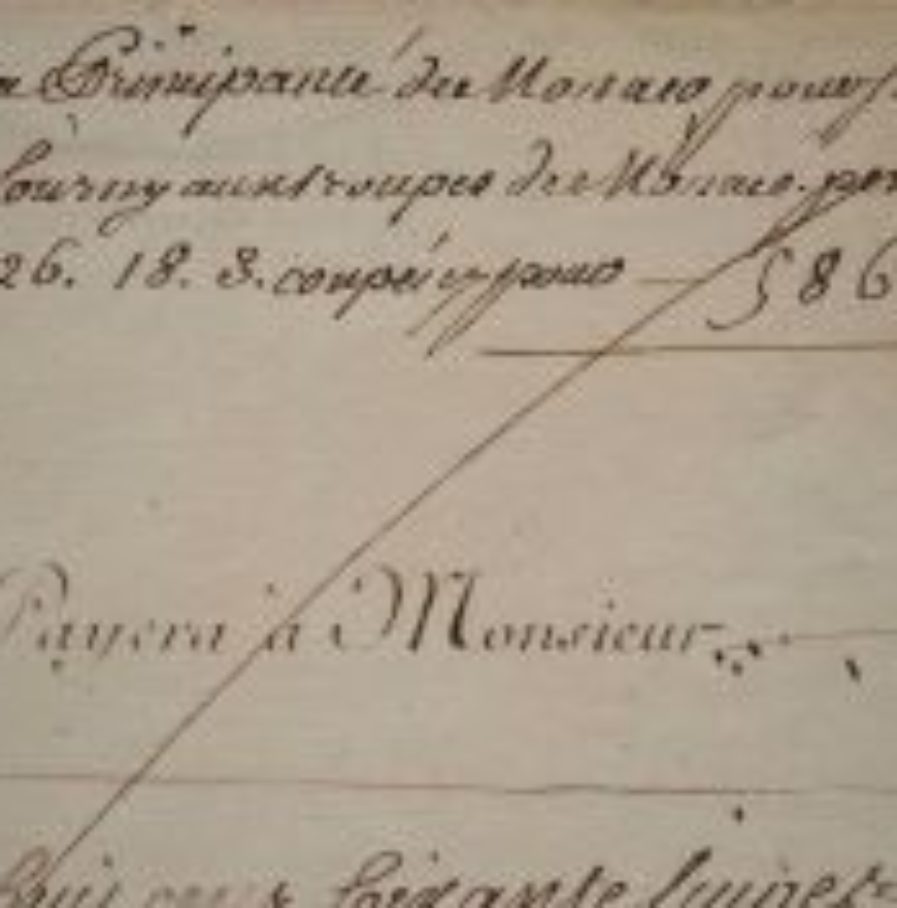 a Principauté de Monaco pour
fourny aux troupes de Monaco. pou
26. 18. 3. coupé cy pour — 586
Payera à Monsieur
huit cent soixante